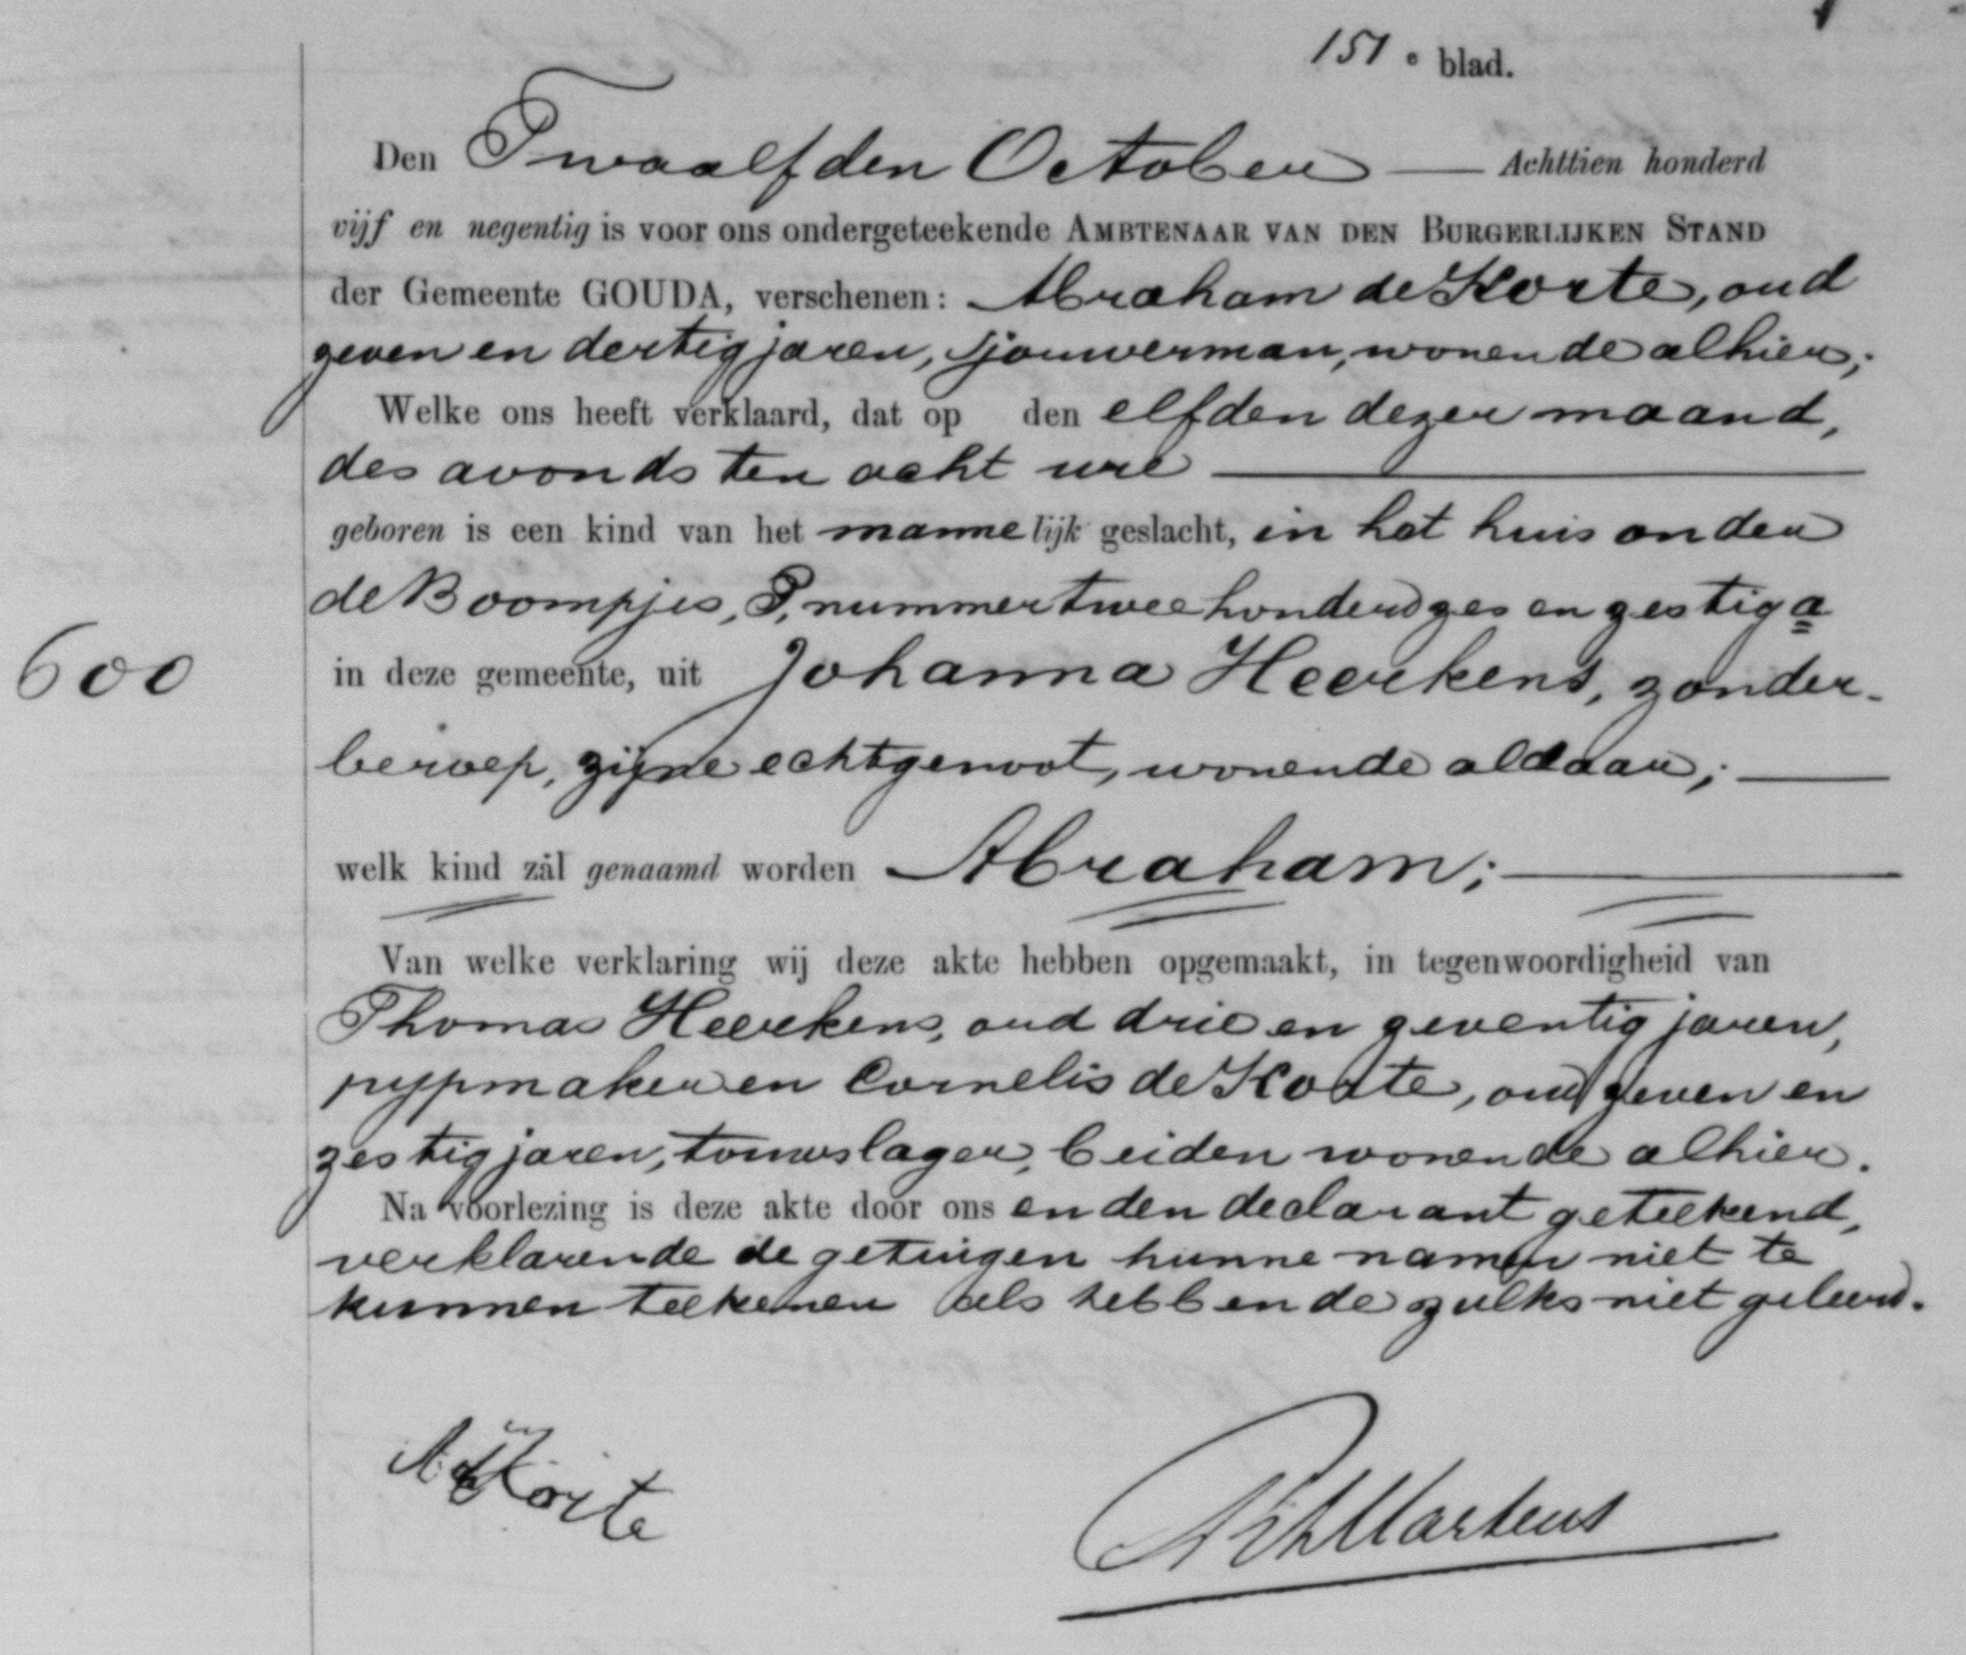 151e blad.
Den Twaalfden October — Achttien honderd
vijf en negentig is voor ons ondergeteekende AMBTENAAR VAN DEN BURGERLIJKEN STAND
der Gemeente GOUDA, verschenen: Abraham de Korte, oud
zeven en dertig jaren, sjouwerman, wonende alhier;
Welke ons heeft verklaard, dat op den elfden dezer maand,
des avonds ten acht ure
geboren is een kind van het mannelijk geslacht, in het huis onder
de Boompjes, P, nummer twee honderd zes en zestig a
600
in deze gemeente, uit Johanna Heerkens, zonder
beroep, zijne echtgenoot, wonende aldaar;
welk kind zal genaamd worden Abraham;
Van welke verklaring wij deze akte hebben opgemaakt, in tegenwoordigheid van
Thomas Heerkens, oud drie en zeventig jaren,
pijpmaker en Cornelis de Korte, oud zeven en
zestig jaren, touwslager, beiden wonende alhier.
Na voorlezing is deze akte door ons en den declarant geteekend,
verklarende de getuigen hunne namen niet te
kunnen teekenen als hebbende zulks niet geleerd.
A de Korte
Martens